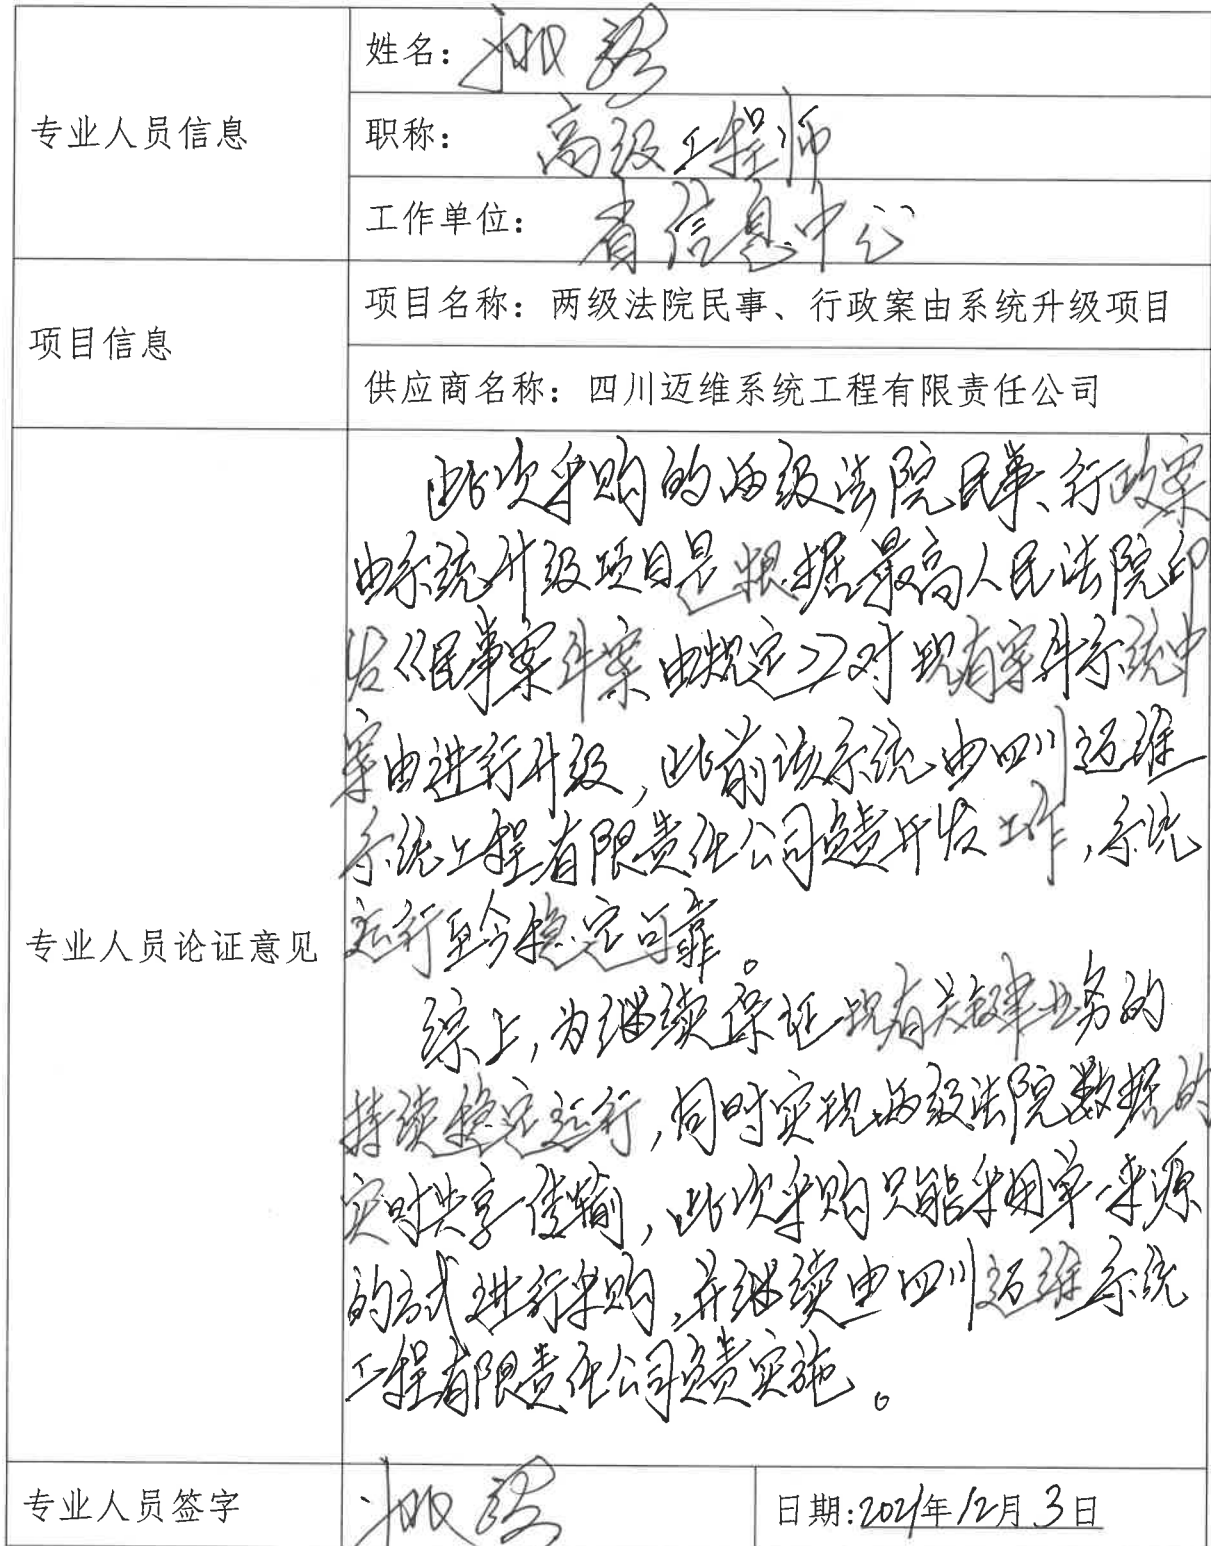 专业人员信息
姓名：
职称：高级工程师
工作单位：省信息中心
项目信息
项目名称：两级法院民事、行政案由系统升级项目
供应商名称：四川迈维系统工程有限责任公司
专业人员论证意见
此次采购的两级法院民事、行政案
由系统升级项目是根据最高人民法院印
发《民事案件案由规定》对现有案件系统中
案由进行升级，此前该系统由四川迈维
系统工程有限责任公司负责开发工作，系统
运行至今稳定可靠。
综上，为继续保证现有关键业务的
持续稳定运行，同时实现两级法院数据的
实时共享传输，此次采购只能采用单一来源
的方式进行采购，并继续由四川迈维系统
工程有限责任公司负责实施。
专业人员签字
日期：2021年12月3日